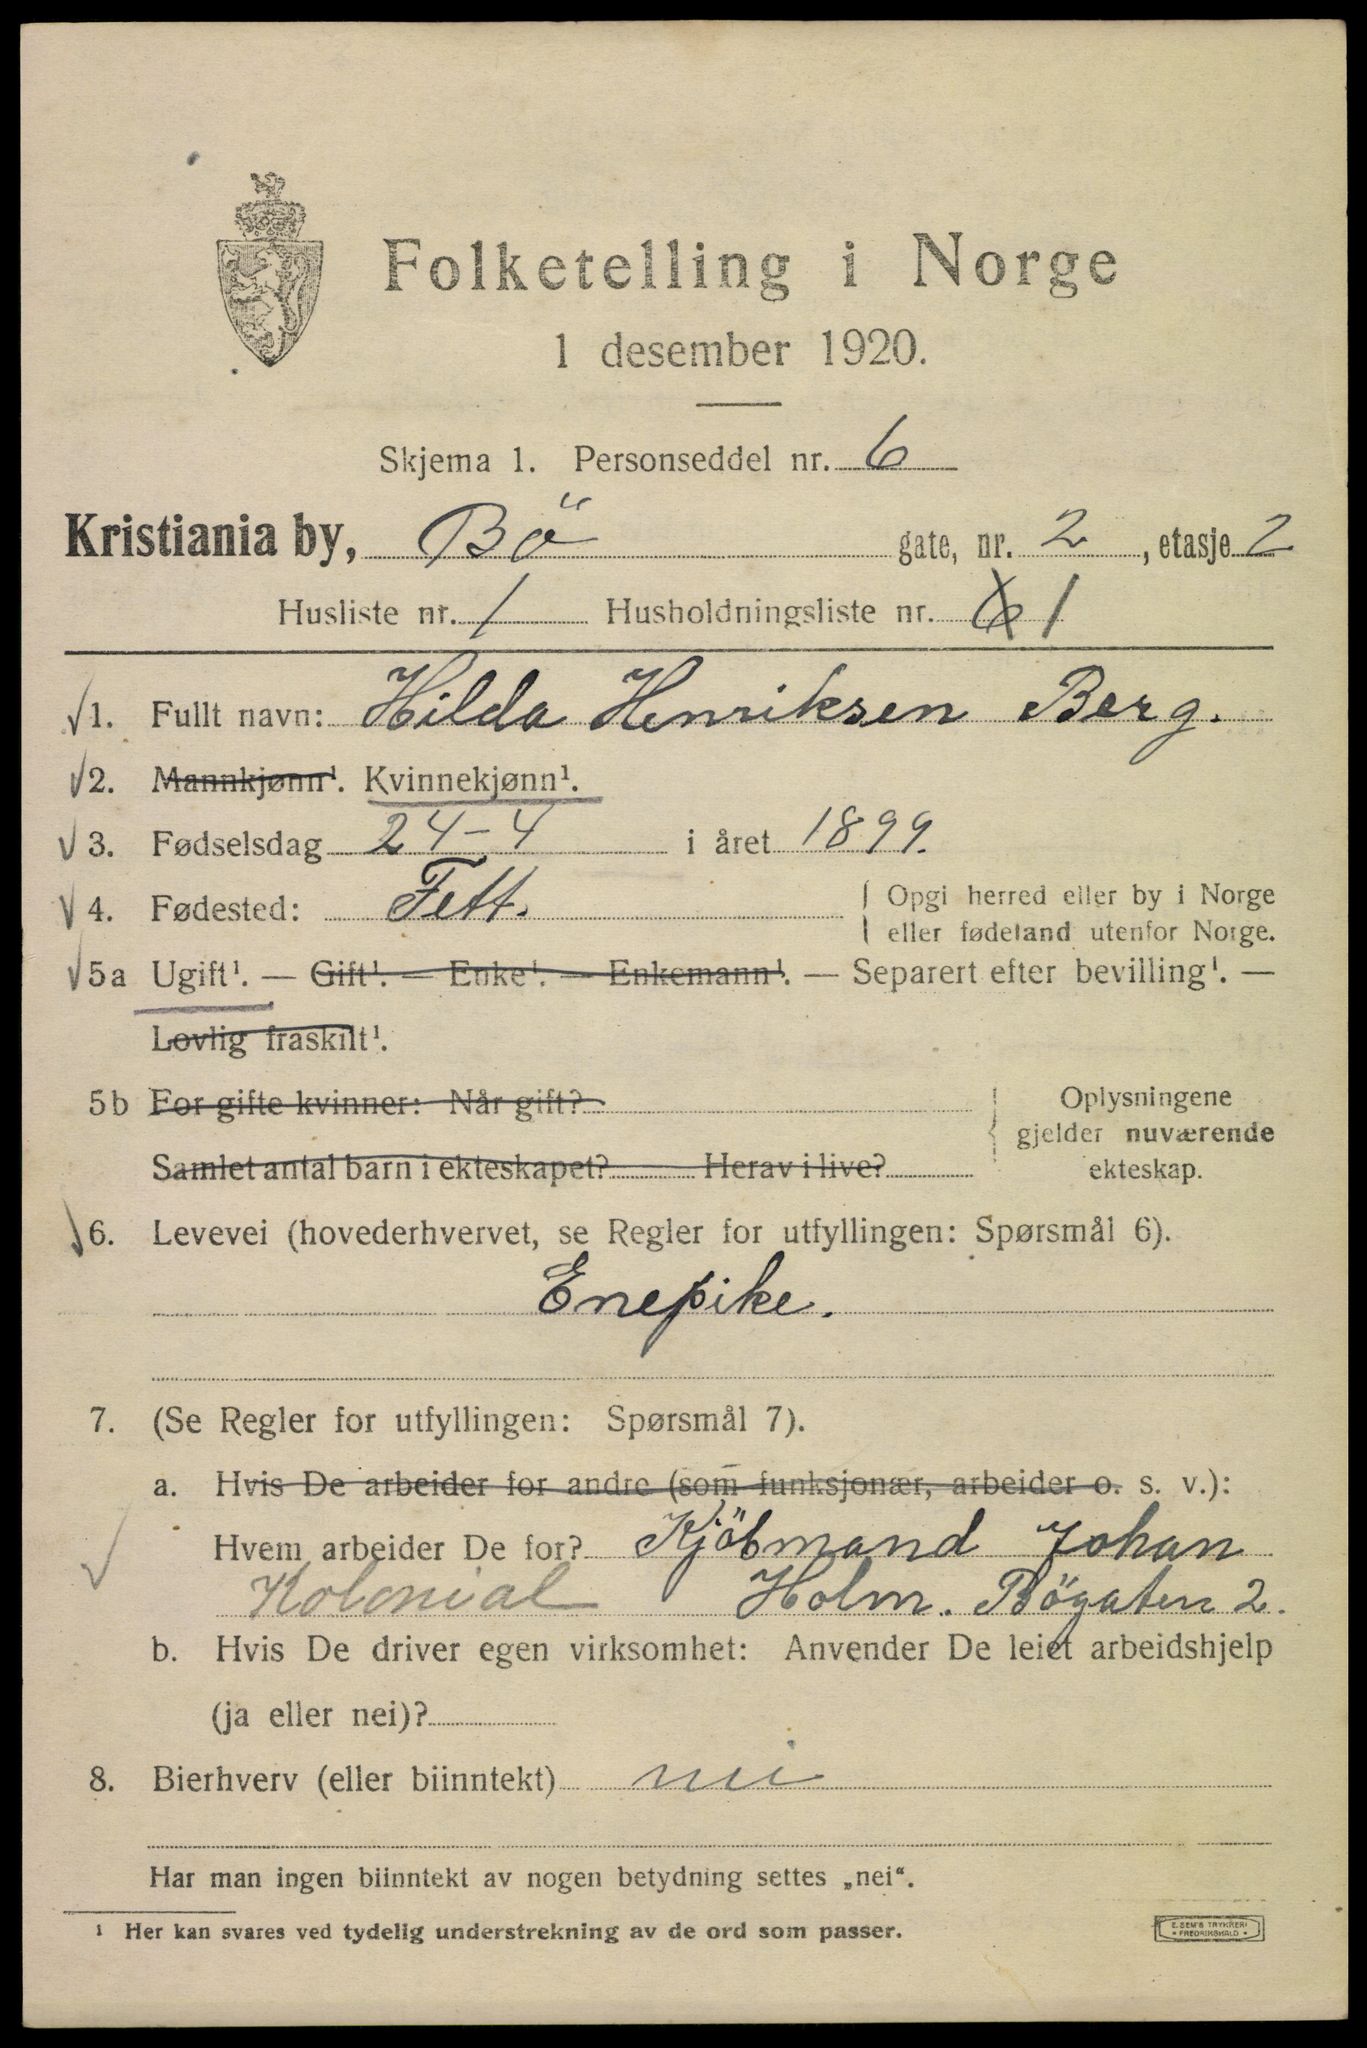 Folketelling i Norge
1 desember 1920.
Skjema 1. Personseddel nr. 6
Kristiania by, Bö gate, nr. 2, etasje 2
Husliste nr. 1 Husholdningsliste nr. 6 1
1. Fullt navn: Hilda Henriksen Berg.
2. Mannkjønn¹. Kvinnekjønn¹.
3. Fødselsdag 24-4 i året 1899.
4. Fødested: Fett. Opgi herred eller by i Norge
eller fødeland utenfor Norge.
5a Ugift¹. — Gift¹. — Enke¹. — Enkemann¹. — Separert efter bevilling¹. —
Lovlig fraskilt¹.
5b For gifte kvinner: Når gift?
Samlet antal barn i ekteskapet? Herav i live?
Oplysningene
gjelder nuværende
ekteskap.
6. Levevei (hovederhvervet, se Regler for utfyllingen: Spørsmål 6).
Enepike.
7. (Se Regler for utfyllingen: Spørsmål 7).
a. Hvis De arbeider for andre (som funksjonær, arbeider o. s. v.):
Hvem arbeider De for? Kjöbmand Johan
Kolonial Holm. Bögaten 2.
b. Hvis De driver egen virksomhet: Anvender De leiet arbeidshjelp
(ja eller nei)?
8. Bierhverv (eller biinntekt) nei
Har man ingen biinntekt av nogen betydning settes „nei“.
¹ Her kan svares ved tydelig understrekning av de ord som passer.
E. SEM'S TRYKKERI
FREDRIKSHALD